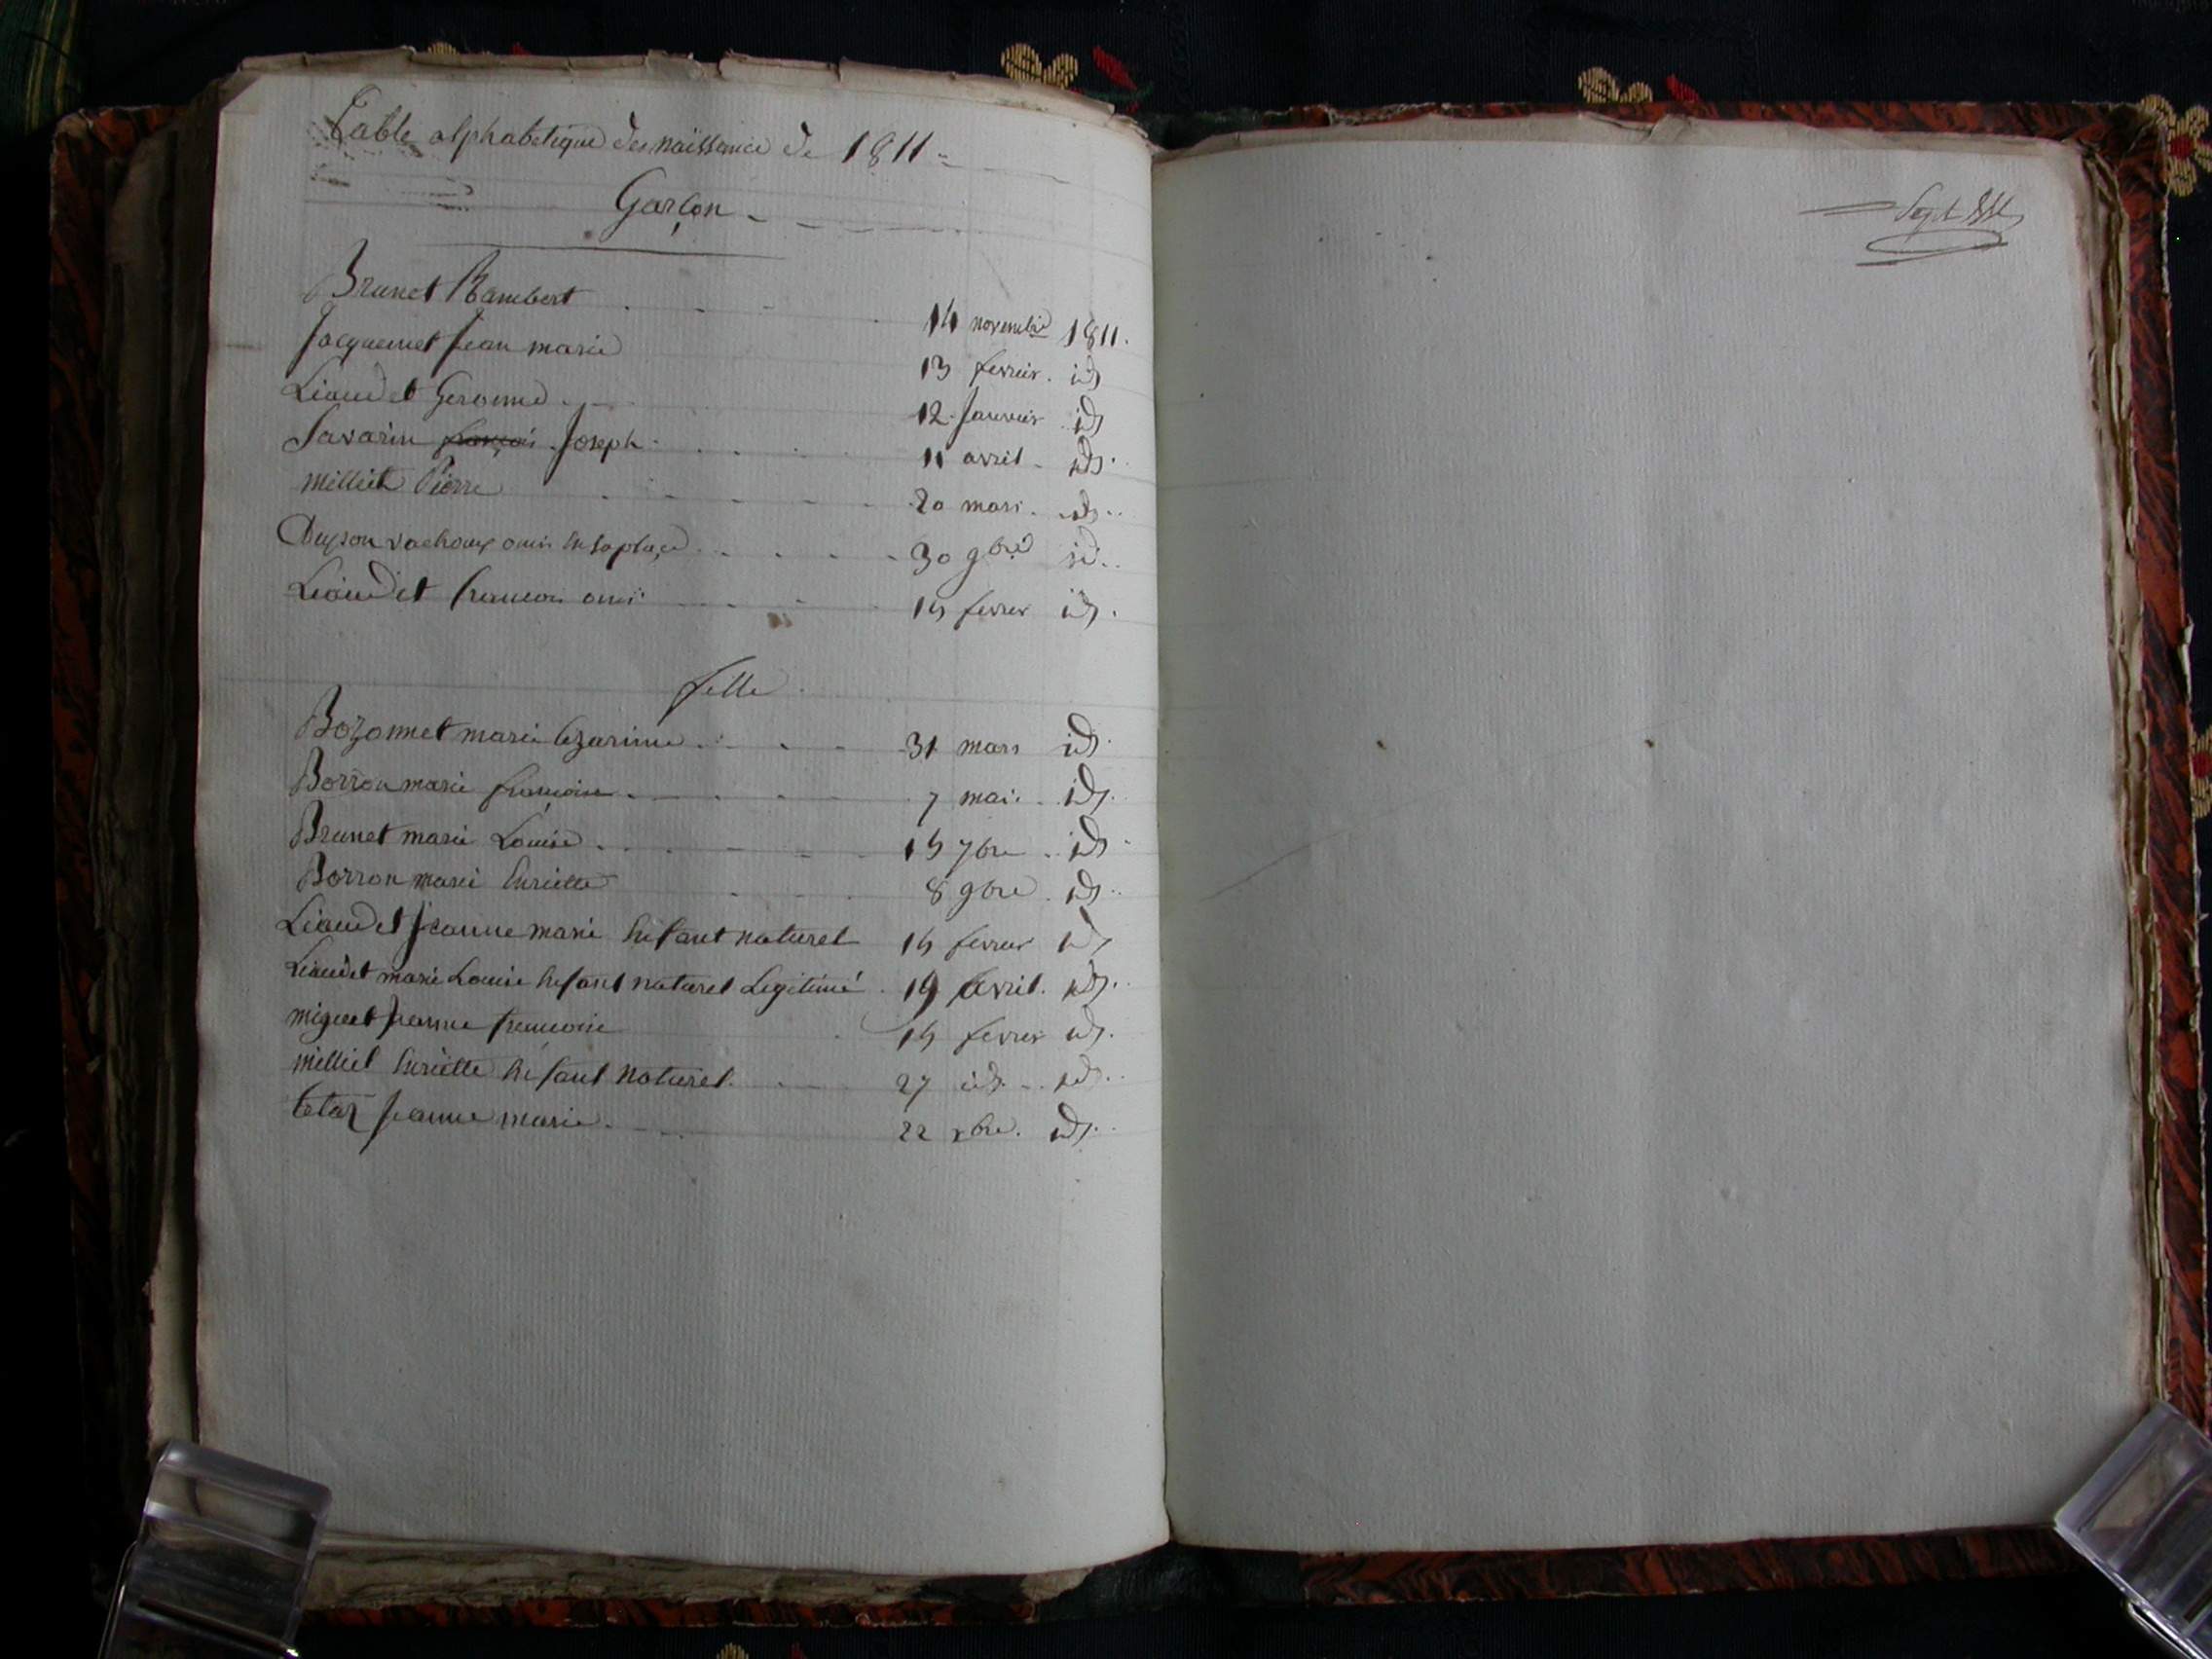 Table alphabetique des naissance de 1811
Garçon
Brunet Rambert 14 novembre 1811.
Jacquemet Jean marie 13 fevrier. id
Liaudet Geromme 12 Janvier id
Savarin françois Joseph 11 avril id
milliet Pierre 20 mars id
vachoux omis en sa place 30 9bre id
Liaudet francois omis 14 fevrier id
fille
Bozonnet marie Cezarinne 31 mars id
Borron marie françoise 7 mai id
Brunet marie Louise 15 7bre id
Borron marie henriette 8 9bre id
Liaudet Jeanne marie enfant naturel 14 fevrier id
Liaudet marie Louise enfant naturel Legitimé 19 avril id
miguet Jeanne francoise 14 fevrier id
milliet henriette enfant Naturel 27 id id
Jeanne marie 22 xbre id
Sept